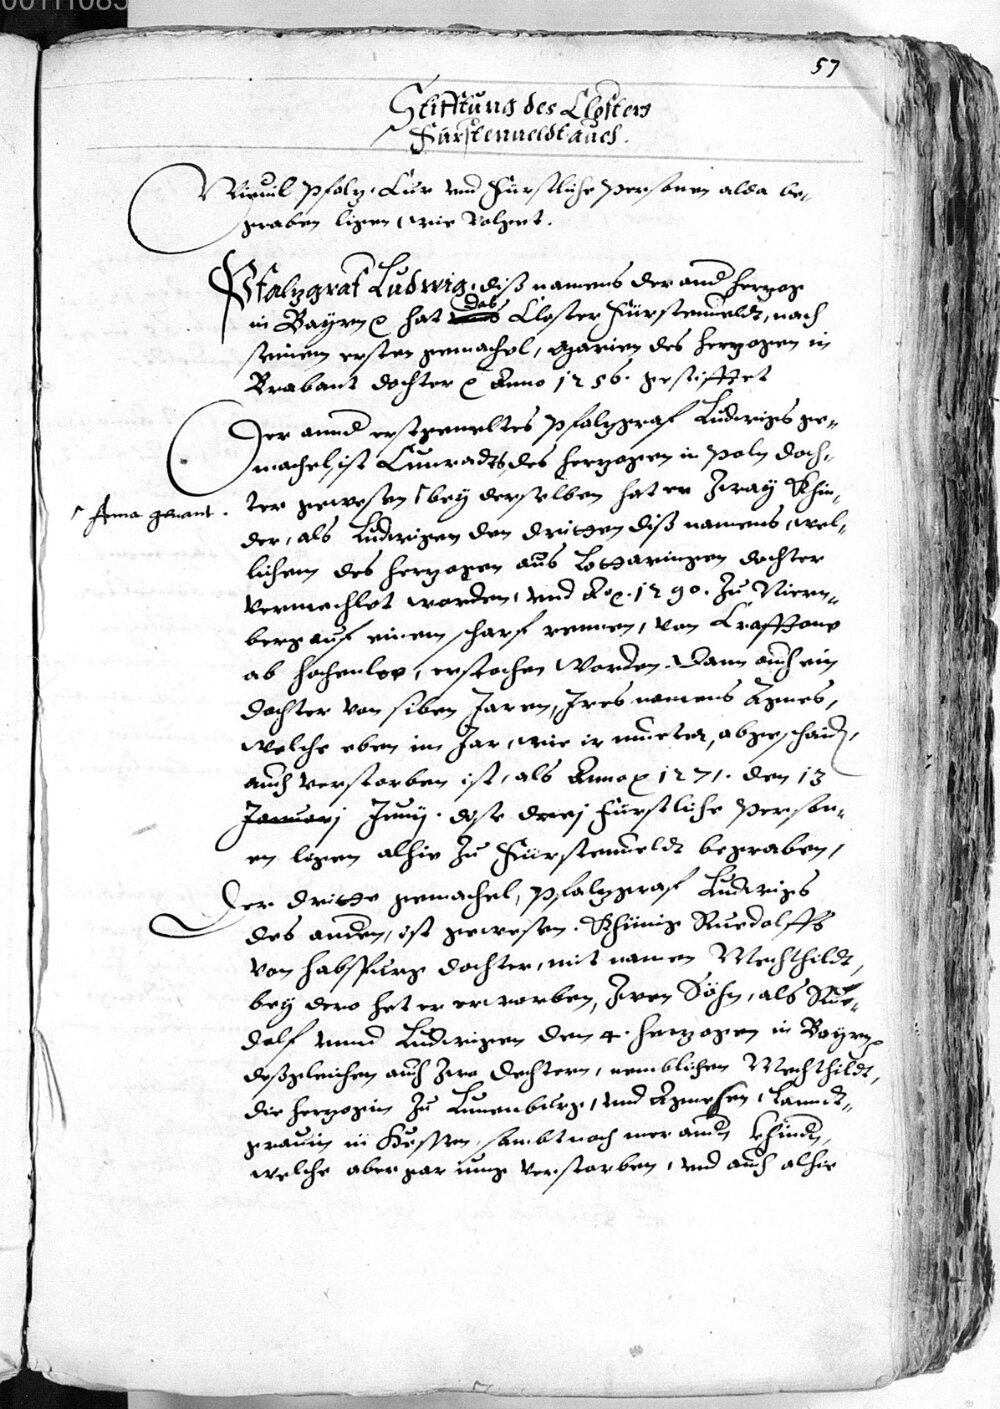 57
Stifftung des Closters
Fürstenueldt auch.
Wieuil Pfalz. Cur vnd Fürstliche personen alda be-
graben ligen, wie volgent.
Pfalzgraf Ludwig, diß namens der and herzog
in Bayrn hat das Closter Fürstenueldt, nach
seinem ersten gemachel, Marien des herzogen in
Brabant dochter Anno 1256. gestifftet
Der annd erstgemeltes Pfalzgraf Ludwigs ge-
machel, ist Cunradts, des herzogen in Poln doch-
ter gewesen bey derselben hat er Zway Khin-
Anna genant.
der, als Ludwigen den dritten diß namens, wel-
lichem des herzogen aus Lottaringen dochter
vermechlet worden, vnd Ao. 1290. Zu Niern-
berg auf einem scharf rennen, von Crafftone
ab Hohenloe, erstochen worden. Dann auch ein
dochter von siben Jaren, Jres namens Agnes,
welche eben im Jar, wie ir mueter, abgeschaid,
auch verstorben ist, als Anno 1271. den 13
Januarj Junij. dise drej Fürstliche person-
en ligen alhie Zu Fürstenueldt begraben,
Der dritte gemachel, Pfalzgraf Ludwigs
des anden, ist gewesen. Khünig Ruedolffs
von Habspurg dochter, mit namen Mechthildt,
bey dero hat er erworben, Zwen Söhn, als Rue-
dolf vnnd Ludwigen den 4. herzogen in Bayrn
deßgleichen auch Zwo döchtern, nemblichen Mechthildt,
die herzogin Zu Lunenburg, vnd Agnesen, Landt-
grauin in Hessen, sambt noch mer andn khindn,
welche aber gar iung verstorben, vnd auch alhie